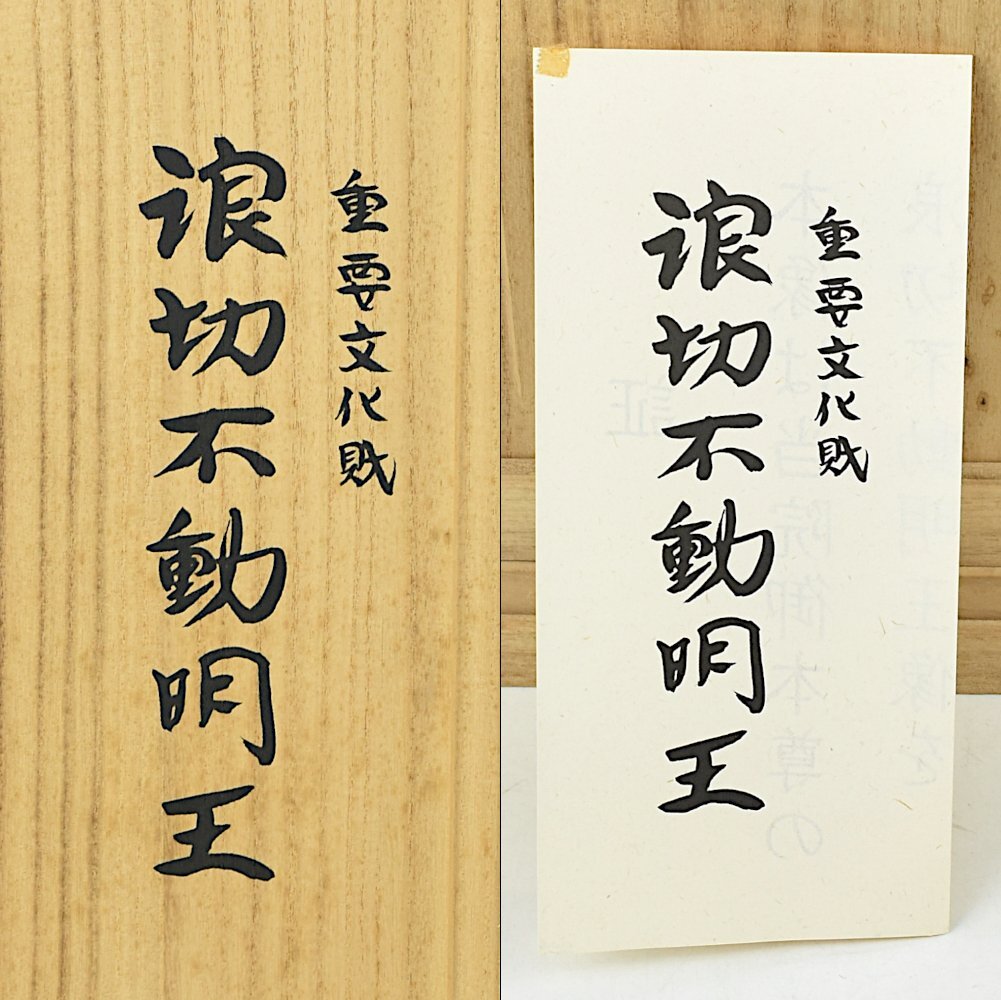 重要文化財
浪切不動明王
重要文化財
浪切不動明王